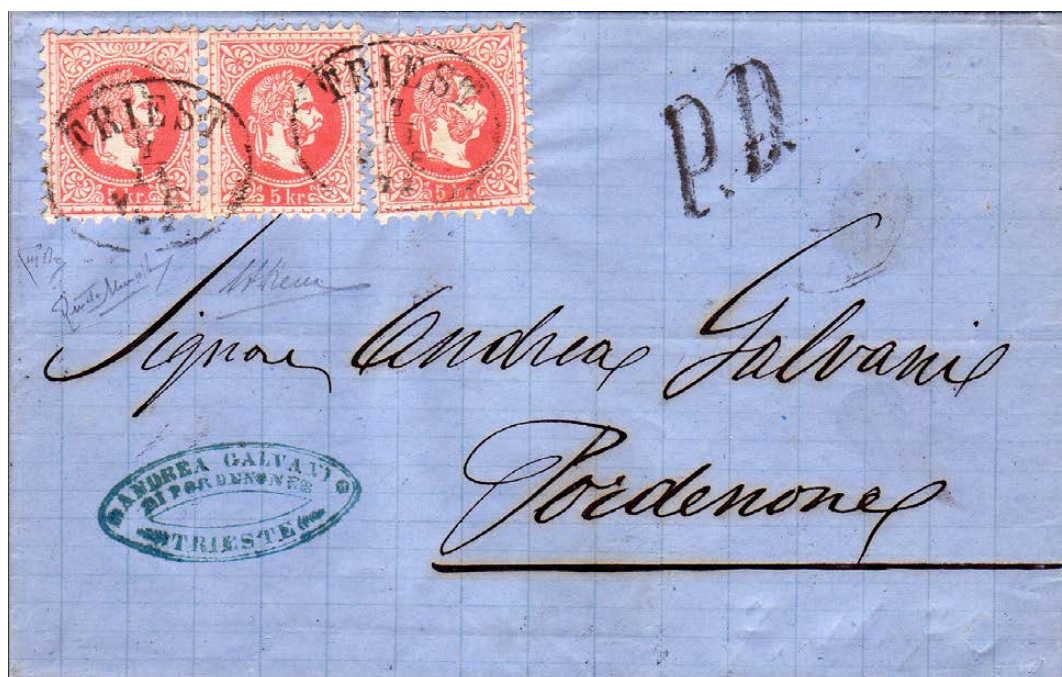 TRIEST
TRIEST
5 kr.
5 kr.
5 kr.
P.D
Signore Andrea Galvani
Pordenone
ANDREA GALVANI
DI PORDENONE
TRIESTE